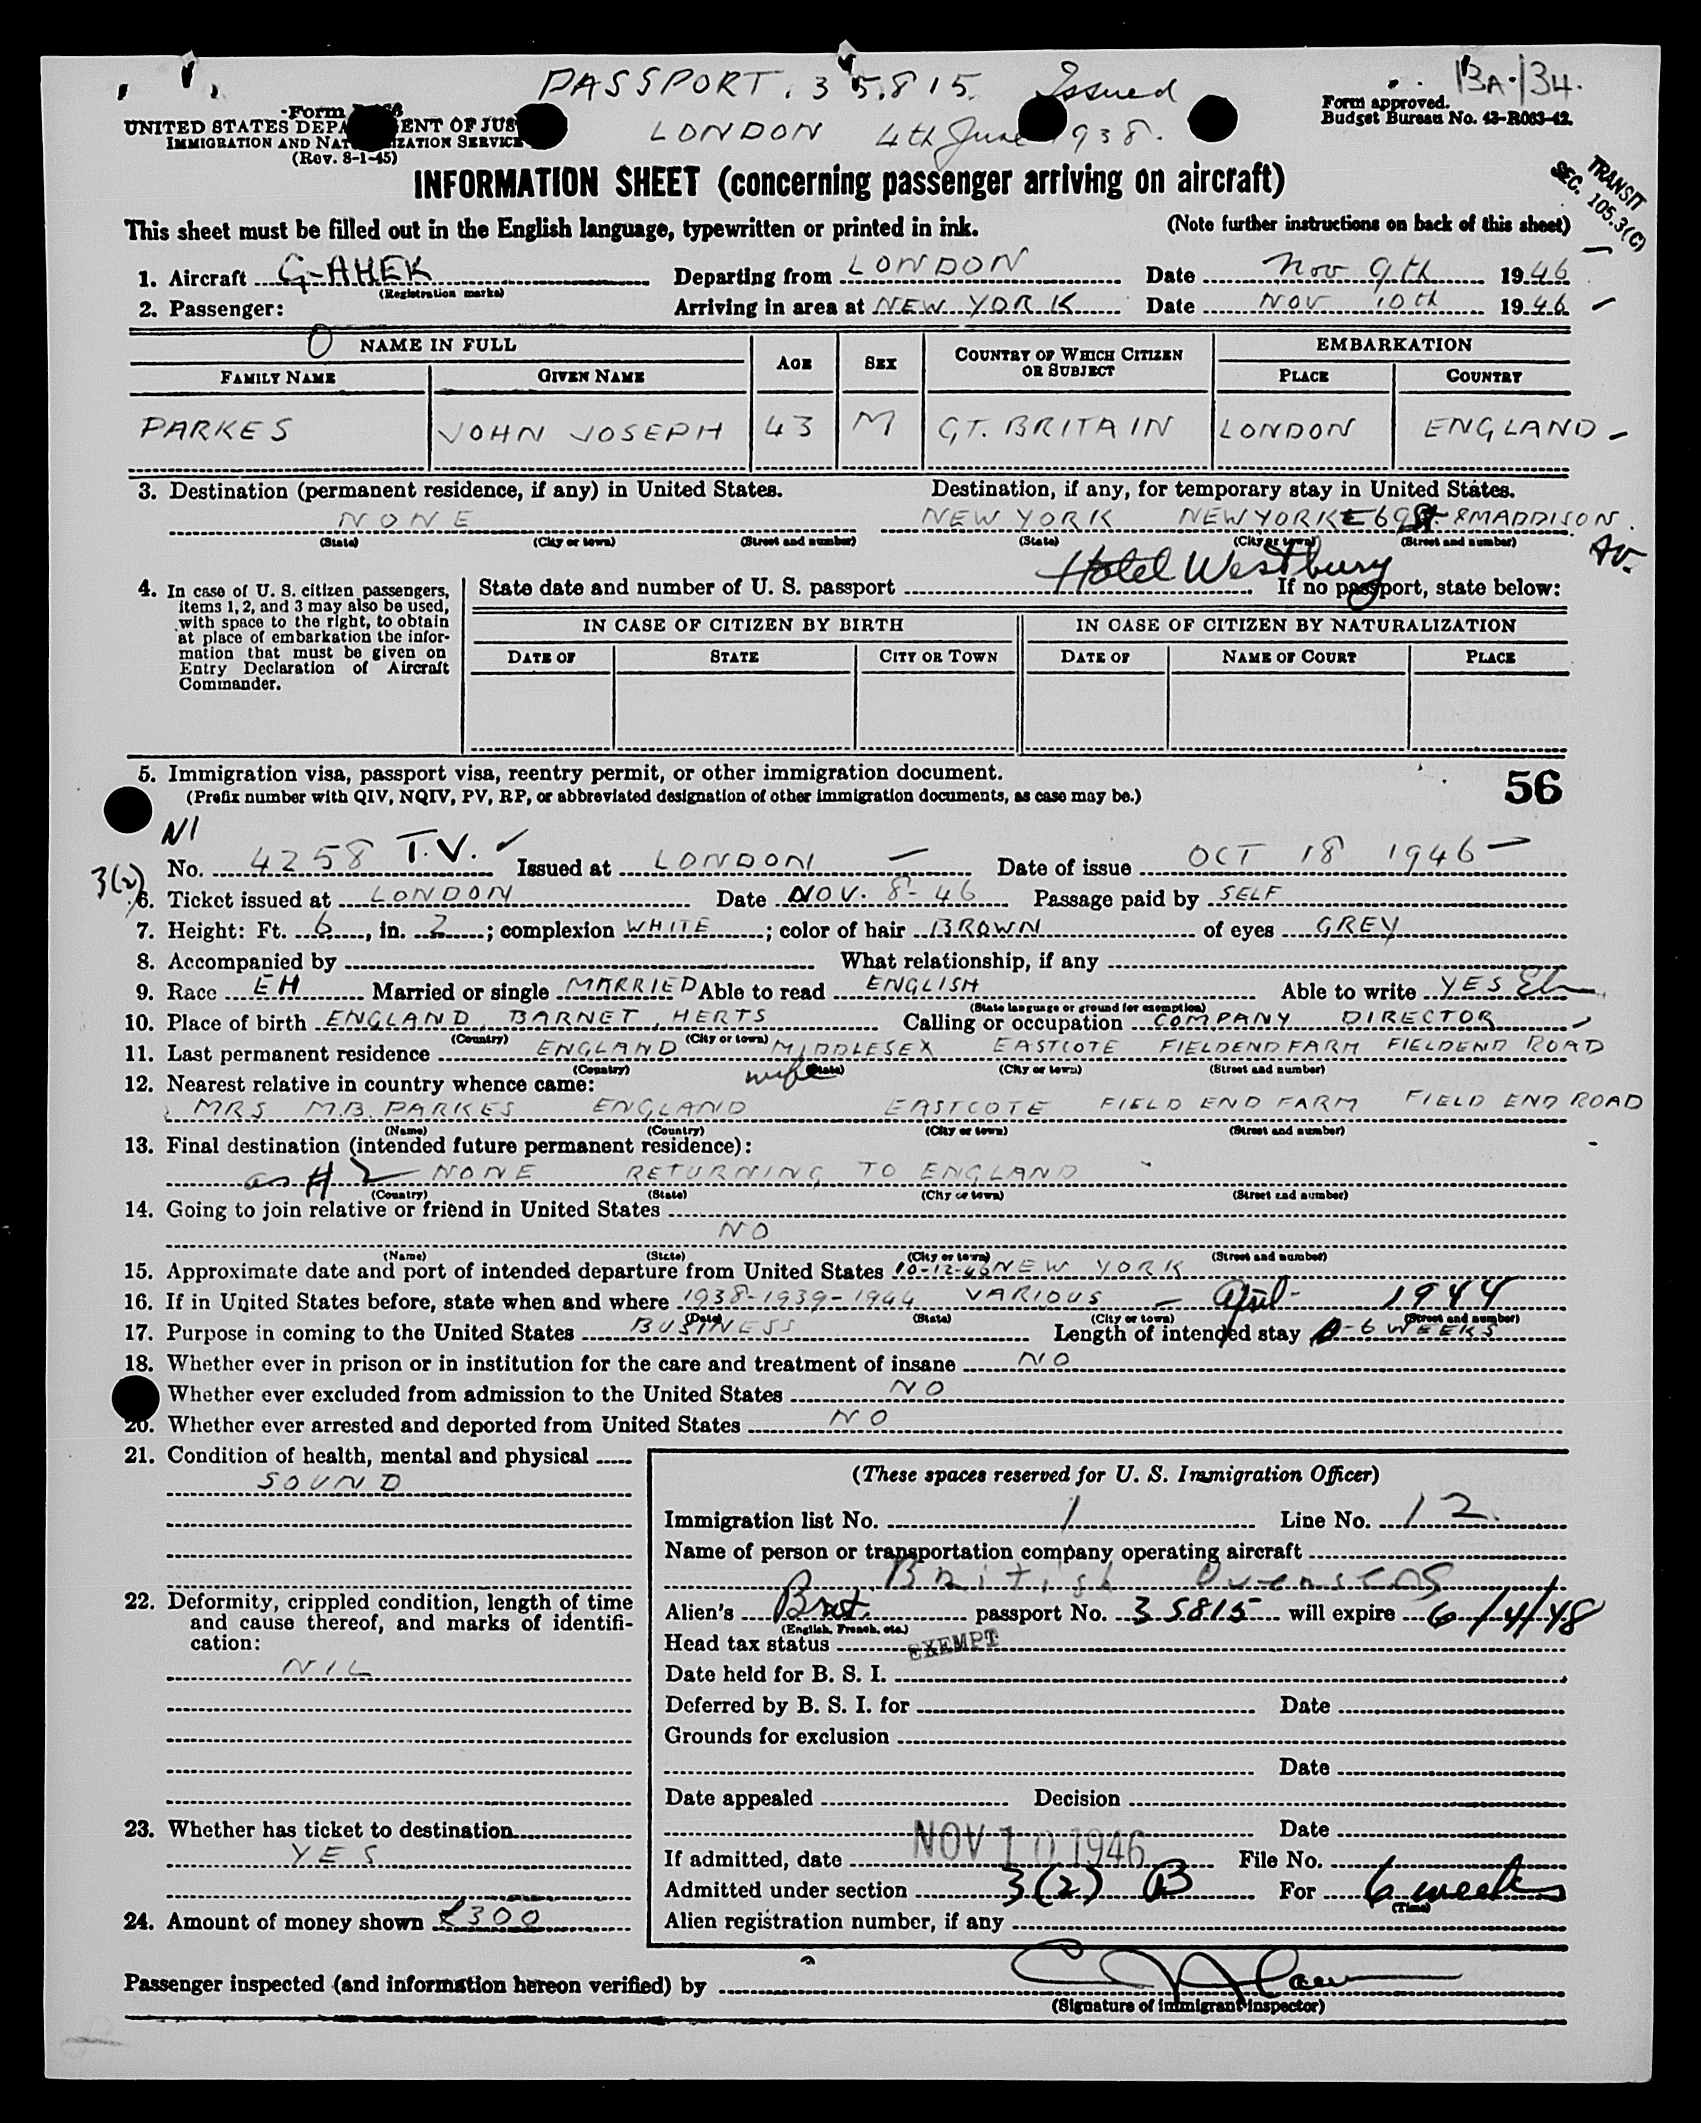 PASSPORT. 35815. Issued
BA-134.
LONDON 4th June 1938.
Form
UNITED STATES DEPARTMENT OF JUSTICE
IMMIGRATION AND NATURALIZATION SERVICE
(Rev. 8-1-45)
Form approved.
Budget Bureau No. 43-R083-42.
INFORMATION SHEET (concerning passenger arriving on aircraft)
TRANSIT
SEC. 105.3(C)
This sheet must be filled out in the English language, typewritten or printed in ink. (Note further instructions on back of this sheet)
1. Aircraft G-AHEK Departing from LONDON Date Nov 9th 1946
(Registration marks)
2. Passenger: Arriving in area at NEW YORK Date NOV 10th 1946
NAME IN FULL AGE SEX COUNTRY OF WHICH CITIZEN OR SUBJECT EMBARKATION
FAMILY NAME GIVEN NAME PLACE COUNTRY
PARKES JOHN JOSEPH 43 M GT. BRITAIN LONDON ENGLAND
3. Destination (permanent residence, if any) in United States. Destination, if any, for temporary stay in United States.
NONE NEW YORK NEW YORK E 69 St. & MADDISON. Av.
(State) (City or town) (Street and number) (State) (City or town) (Street and number)
Hotel Westbury
4. In case of U. S. citizen passengers, items 1, 2, and 3 may also be used, with space to the right, to obtain at place of embarkation the information that must be given on Entry Declaration of Aircraft Commander.
State date and number of U. S. passport If no passport, state below:
IN CASE OF CITIZEN BY BIRTH IN CASE OF CITIZEN BY NATURALIZATION
DATE OF STATE CITY OR TOWN DATE OF NAME OF COURT PLACE
5. Immigration visa, passport visa, reentry permit, or other immigration document.
(Prefix number with QIV, NQIV, PV, RP, or abbreviated designation of other immigration documents, as case may be.)
56
NI
No. 4258 T.V. Issued at LONDON Date of issue OCT 18 1946
3(2)
6. Ticket issued at LONDON Date NOV. 8-46 Passage paid by SELF
7. Height: Ft. 6, in. 2; complexion WHITE; color of hair BROWN of eyes GREY
8. Accompanied by What relationship, if any
9. Race EH Married or single MARRIED Able to read ENGLISH Able to write YES
(State language or ground for exemption)
10. Place of birth ENGLAND, BARNET, HERTS Calling or occupation COMPANY DIRECTOR
(Country) (City or town)
11. Last permanent residence ENGLAND MIDDLESEX EASTCOTE FIELDEND FARM FIELDEND ROAD
(Country) (State) (City or town) (Street and number)
12. Nearest relative in country whence came: wife
MRS M.B. PARKES ENGLAND EASTCOTE FIELD END FARM FIELD END ROAD
(Name) (Country) (City or town) (Street and number)
13. Final destination (intended future permanent residence):
as # NONE RETURNING TO ENGLAND
(Country) (State) (City or town) (Street and number)
14. Going to join relative or friend in United States
NO
(Name) (State) (City or town) (Street and number)
15. Approximate date and port of intended departure from United States 10-12-46 NEW YORK
16. If in United States before, state when and where 1938-1939-1944 VARIOUS - April - 1944
(Date) (State) (City or town) (Street and number)
17. Purpose in coming to the United States BUSINESS Length of intended stay -6 WEEKS
18. Whether ever in prison or in institution for the care and treatment of insane NO
Whether ever excluded from admission to the United States NO
20. Whether ever arrested and deported from United States NO
21. Condition of health, mental and physical
SOUND
22. Deformity, crippled condition, length of time and cause thereof, and marks of identification:
NIL
23. Whether has ticket to destination
YES
24. Amount of money shown £300
(These spaces reserved for U. S. Immigration Officer)
Immigration list No. 1 Line No. 12.
Name of person or transportation company operating aircraft
British Overseas
Alien's Brit. passport No. 35815 will expire 6/4/48
(English, French, etc.)
Head tax status EXEMPT
Date held for B. S. I.
Deferred by B. S. I. for Date
Grounds for exclusion
Date
Date appealed Decision
Date
If admitted, date NOV 10 1946 File No.
Admitted under section 3(2) B For 6 weeks
(Time)
Alien registration number, if any
Passenger inspected (and information hereon verified) by
(Signature of immigrant inspector)